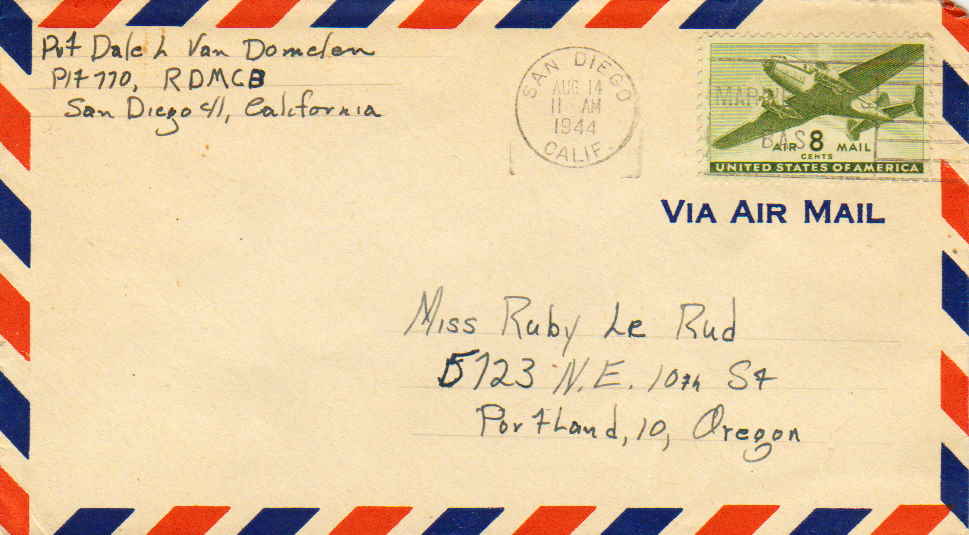 Pvt Dale L Van Domelen
Plt 770, RDMCB
San Diego 41, California
SAN DIEGO
AUG 14
11 AM
1944
CALIF.
AIR 8 MAIL
CENTS
UNITED STATES OF AMERICA
VIA AIR MAIL
Miss Ruby Le Rud
5723 N.E. 10th St
Portland, 10, Oregon